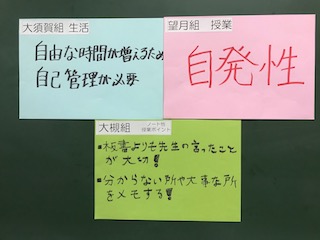 大須賀組 生活
自由な時間が増えるため
自己管理が必要
望月組 授業
自発性
大槻組 ノート術
授業ポイント
▪板書よりも先生の言ったこと
が大切!!
▪分からない所や大事な所
をメモする!!